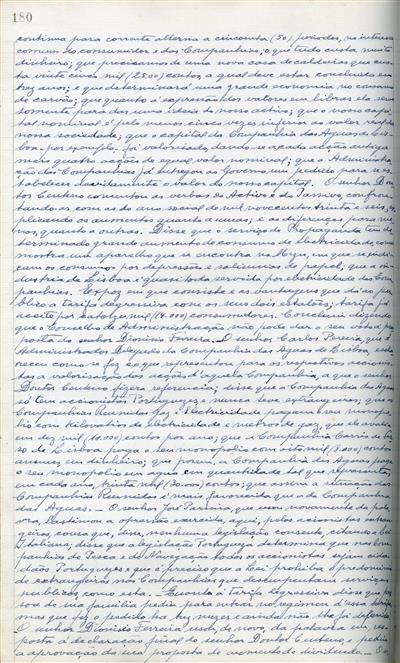 180
continua para corrente alterna a cincoenta (50) periodos, no interesse
comum do consumidor e das Companhias; o que tudo custa muito
dinheiro; que precisamos de uma nova casa de caldeiras que cus-
ta vinte cinco mil (25.000) contos, a qual deve estar concluida em
tres anos; e que determinará uma grande economia no consumo
de carvão; que quanto á expressão dos valores em libras ela serve
somente para dar uma ideia do nosso activo; que o nosso capi-
tal nominal é pelo menos cinco vezes inferior ao valor real da
nossa sociedade; que o capital da Companhia das Aguas de Lis-
boa por exemplo, foi valorisado, dando-se a cada acção antiga
mais quatro acções de egual valor nominal; que a Administra-
ção das Companhias já entregou ao Governo um pedido para se es-
tabelecer devidamente o valor do nosso capital. O senhor Dou-
tor Centeno comentou as verbas do Activo e do Passivo confron-
tando-as com as do ano social de mil novecentos trinta e seis, ex-
plicando os aumentos quanto a umas; e as diferenças para me-
nos, quanto a outras. Disse que o serviço de Propaganda tem de-
terminado grande aumento de consumo de electricidade, como
mostra um aparelho que se encontra na Meza, em que se indi-
cam os consumos por depressões e saliencias de papel; que a in-
dustria de Lisboa é quasi toda servida por electricidade das Com-
panhias. Expoz em que consiste e as vantagens que dá ao pu-
blico a tarifa degressiva com os seus dois escalões; tarifa já
aceite por catorze mil (14.000) consumidores. Concluiu dizendo
que o Conselho de Administração não pode dar o seu voto á pro-
posta do senhor Dionisio Ferreira. O senhor Carlos Pereira, que é
Administrador Delegado da Companhia das Aguas de Lisboa escla-
receu como se fez e o que representou para os respectivos accionis-
tas a valorisação das acções d'aquela Companhia, a que o senhor
Doutor Centeno fizera referencia; disse que a Companhia das Aguas
só tem accionistas Portuguezes e nunca teve estrangeiros; que as
Companhias Reunidas Gaz e Electricidade pagam o seu monopo-
lio com kilovatios de electricidade e metros de gaz, que ele avalia
em dez mil (10.000) contos por ano; que a Companhia Carris de Fer-
ro de Lisboa paga o seu monopolio com oito mil (8.000) contos
anuaes, em dinheiro; que porem, a Companhia das Aguas paga
o seu monopolio em agua em quantidade tal que representa,
em cada ano, trinta mil (30.000) contos; que assim a situação das
Companhias Reunidas é mais favorecida que a da Companhia
das Aguas. — O senhor José Parreira, que usou novamente da pala-
vra, lastimou a opressão exercida, aqui, pelos accionistas estran-
geiros, cousa que, disse, nenhuma legislação consente, citando a lei
Italiana; disse que a legislação Portugueza determina que nas Com-
panhias de Pesca e de Navegação todos os accionistas sejam cida-
dãos Portuguezes e que é preciso que a Lei prohiba o predominio
de estrangeiros nas Companhias que desempenham serviços
publicos, como esta. Quanto á Tarifa Degressiva disse que pes-
soa de sua familia pedira para entrar no regimen d'essa tarifa
mas que fez o pedido ha tres mezes e ainda não lhe foi deferido.
O senhor Dionisio Ferreira usou, de novo, da palavra em res-
posta á declaração final do senhor Doutor Centeno e pediu
a aprovação da sua proposta de aumento de dividendo. — O se-